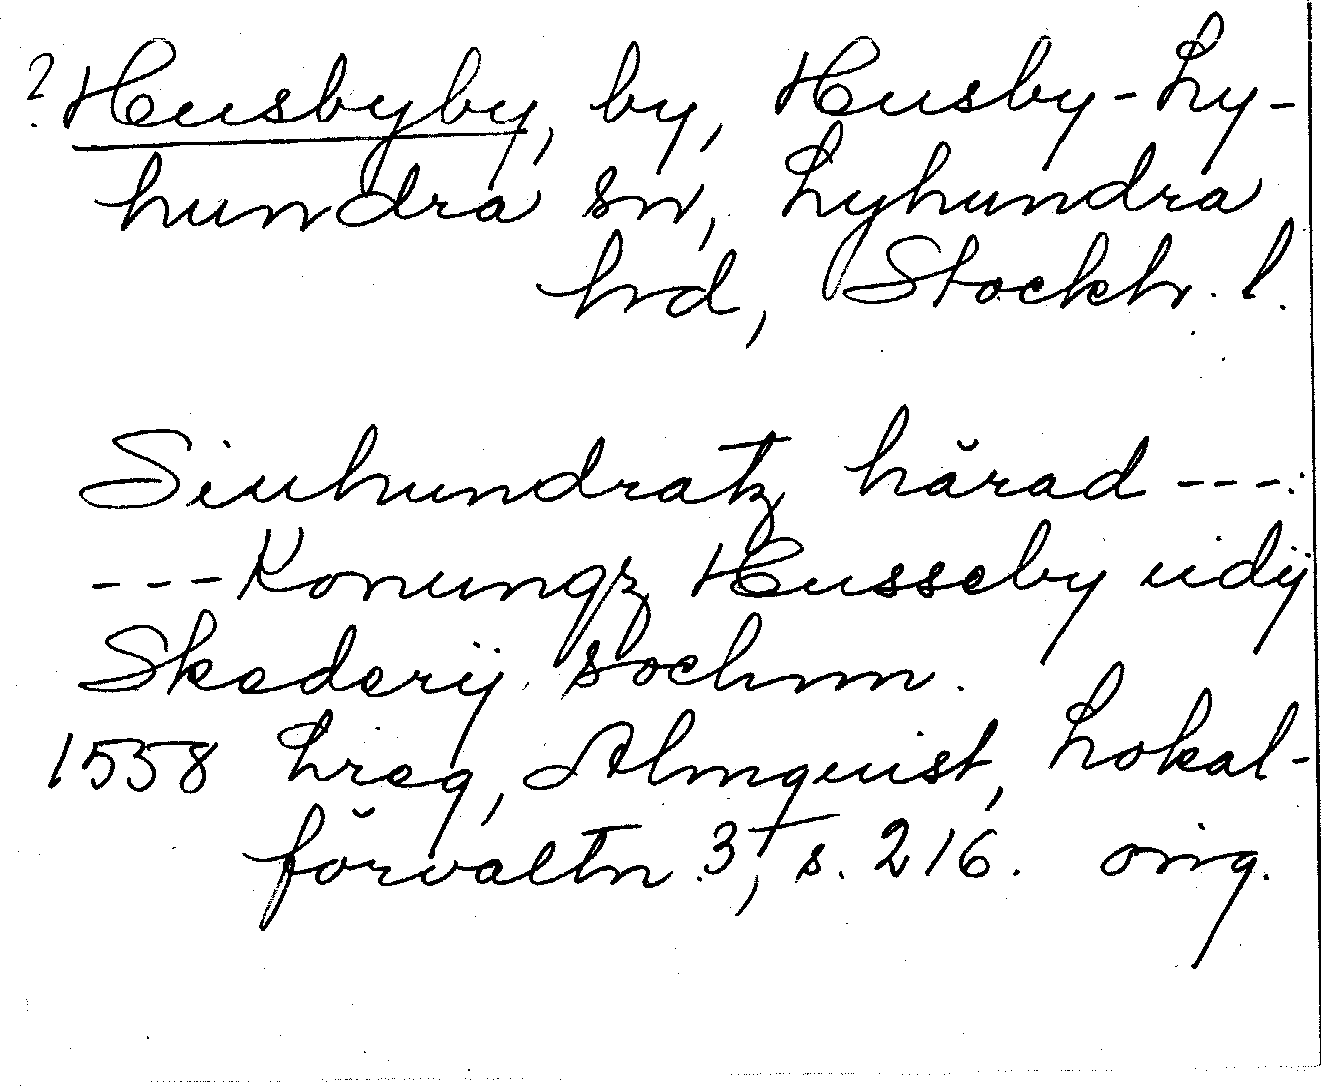 ? Husbyby, by, Husby-Ly-
hundra sn, Lyhundra
hd, Stockh. l.
Siuhundratz härad ---
--- Konungz Husseby udij
Skederij sochnn.
1558 Lreg, Almquist, Lokal-
förvaltn. 3, s. 216. orig.